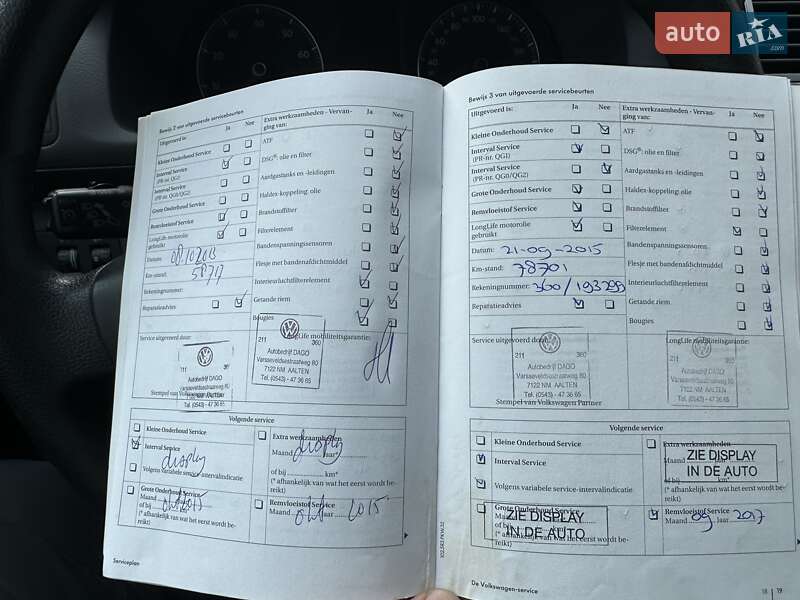 auto RIA .com
Bewijs 2 van uitgevoerde servicebeurten
Uitgevoerd is: Ja Nee
Kleine Onderhoud Service
Interval Service
(PR-nr. QG1)
Interval Service
(PR-nr. QG0/QG2)
Grote Onderhoud Service
Remvloeistof Service
LongLife motorolie
gebruikt
Datum:
Km-stand: 58717
Rekeningnummer:
Reparatieadvies
Extra werkzaamheden - Vervan-
ging van: Ja Nee
ATF
DSG®: olie en filter
Aardgastanks en -leidingen
Haldex-koppeling: olie
Brandstoffilter
Filterelement
Bandenspanningssensoren
Flesje met bandenafdichtmiddel
Interieurluchtfilterelement
Getande riem
Bougies
Service uitgevoerd door:
LongLife mobiliteitsgarantie:
211 360
Autobedrijf DAGO
Varsseveldsestraatweg 80
7122 NM AALTEN
Tel. (0543) - 47 36 65
Stempel van Volkswagen Partner
211 360
Autobedrijf DAGO
Varsseveldsestraatweg 80
7122 NM AALTEN
Tel. (0543) - 47 36 65
Volgende service
Kleine Onderhoud Service
Interval Service
display
Volgens variabele service-intervalindicatie
Grote Onderhoud Service
Maand okt jaar 2015
of bij km*
(* afhankelijk van wat het eerst wordt be-
reikt)
Extra werkzaamheden
display
Maand jaar
of bij km*
(* afhankelijk van wat het eerst wordt be-
reikt)
Remvloeistof Service
Maand okt jaar 2015
Serviceplan
Bewijs 3 van uitgevoerde servicebeurten
Uitgevoerd is: Ja Nee
Kleine Onderhoud Service
Interval Service
(PR-nr. QG1)
Interval Service
(PR-nr. QG0/QG2)
Grote Onderhoud Service
Remvloeistof Service
LongLife motorolie
gebruikt
Datum: 21-09-2015
Km-stand: 78701
Rekeningnummer: 360/193299
Reparatieadvies
Extra werkzaamheden - Vervan-
ging van: Ja Nee
ATF
DSG®: olie en filter
Aardgastanks en -leidingen
Haldex-koppeling: olie
Brandstoffilter
Filterelement
Bandenspanningssensoren
Flesje met bandenafdichtmiddel
Interieurluchtfilterelement
Getande riem
Bougies
Service uitgevoerd door:
LongLife mobiliteitsgarantie:
211 360
Autobedrijf DAGO
Varsseveldsestraatweg 80
7122 NM AALTEN
Tel. (0543) - 47 36 65
Stempel van Volkswagen Partner
211 360
Autobedrijf DAGO
Varsseveldsestraatweg 80
7122 NM AALTEN
Tel. (0543) - 47 36 65
Volgende service
Kleine Onderhoud Service
Interval Service
Volgens variabele service-intervalindicatie
Grote Onderhoud Service
ZIE DISPLAY
IN DE AUTO
(* afhankelijk van wat het eerst wordt be-
reikt)
Extra werkzaamheden
Maand
ZIE DISPLAY
IN DE AUTO
of bij km*
(* afhankelijk van wat het eerst wordt be-
reikt)
Remvloeistof Service
Maand 09 jaar 2017
De Volkswagen-service
18 19